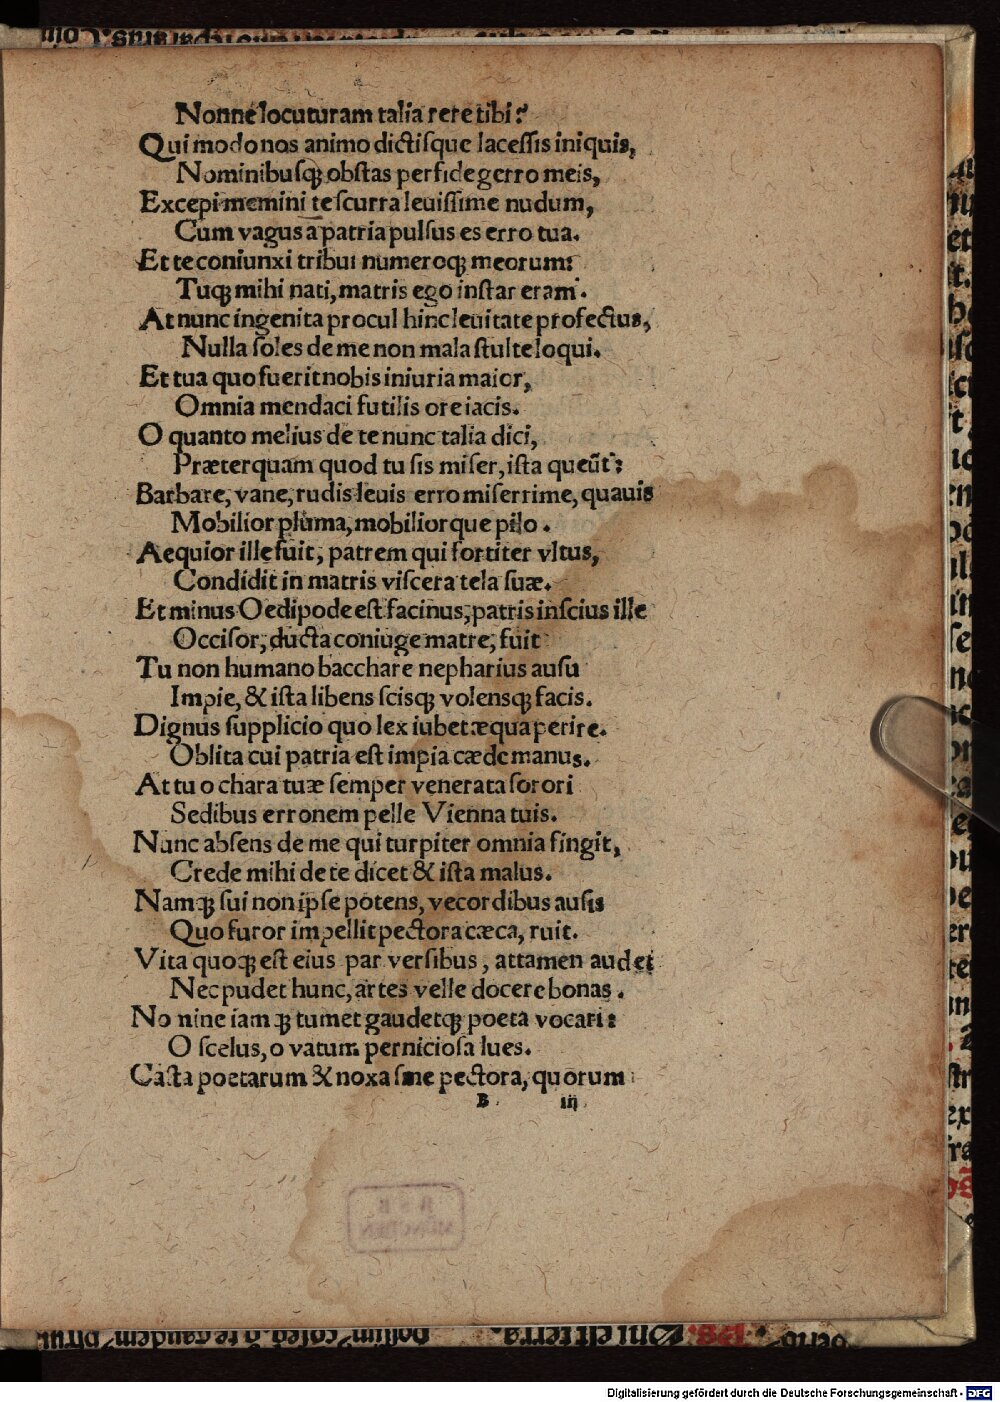 Nonne locuturam talia rere tibi?
Qui modo nos animo dictiſque laceſſis iniquis,
Nominibuſqꝫ obſtas perfide gerro meis,
Excepi memini te ſcurra leuiſſime nudum,
Cum vagus a patria pulſus es erro tua.
Et te coniunxi tribui numeroqꝫ meorum:
Tuqꝫ mihi nati, matris ego inſtar eram.
At nunc ingenita procul hinc leuitate profectus,
Nulla ſoles de me non mala ſtulte loqui.
Et tua quo fuerit nobis iniuria maior,
Omnia mendaci futilis ore iacis.
O quanto melius de te nunc talia dici,
Præterquam quod tu ſis miſer, iſta queūt:
Barbare, vane, rudis leuis erro miſerrime, quauis
Mobilior pluma, mobiliorque pilo.
Aequior ille fuit, patrem qui fortiter vltus,
Condidit in matris viſcera tela ſuæ.
Et minus Oedipode eſt facinus, patris inſcius ille
Occiſor, ducta coniuge matre, fuit
Tu non humano bacchare nepharius auſu
Impie, & iſta libens ſcisqꝫ volensqꝫ facis.
Dignus ſupplicio quo lex iubet æqua perire.
Oblita cui patria eſt impia cæde manus.
At tu o chara tuæ ſemper venerata ſorori
Sedibus erronem pelle Vienna tuis.
Nunc abſens de me qui turpiter omnia fingit,
Crede mihi de te dicet & iſta malus.
Namqꝫ ſui non ipſe potens, vecordibus auſis
Quo furor impellit pectora cæca, ruit.
Vita quoqꝫ eſt eius par verſibus, attamen audet
Nec pudet hunc, artes velle docere bonas.
No nine iam qꝫ tumet gaudetqꝫ poeta vocari:
O ſcelus, o vatum pernicioſa lues.
Caſta poetarum & noxa ſine pectora, quorum
B iij
BSB
MÜNCHEN
Digitalisierung gefördert durch die Deutsche Forschungsgemeinschaft - DFG